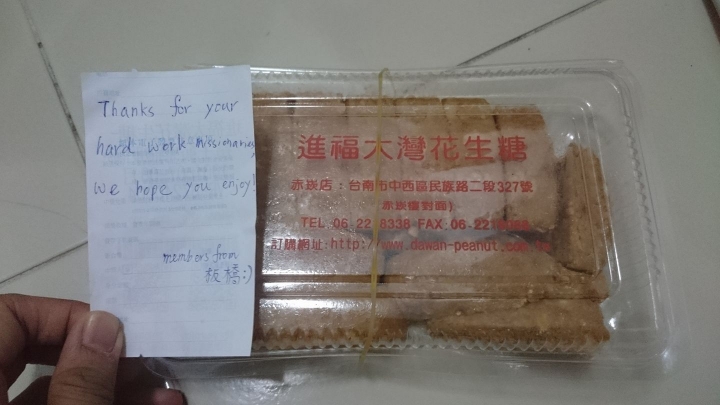 Thanks for your
hard work missionaries,
we hope you enjoy!
members from
板橋:)
進福大灣花生糖
赤崁店：台南市中西區民族路二段327號
赤崁樓對面)
TEL 06 FAX 06
訂購網址:http://www.dawan-peanut.com.tw